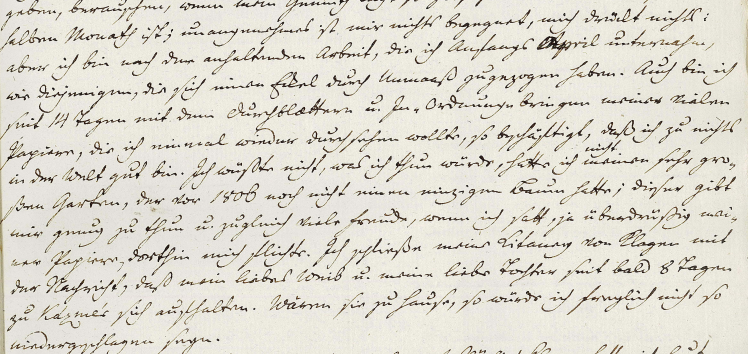 geben, berauschen, wenn mein Gemüth
halben Monath ist; unangenehmes ist mir nichts begegnet, mich drückt nichts:
aber ich bin nach der anhaltenden Arbeit, die ich Anfangs April unternahm,
wie diejenigen, die sich einen Ekel durch Unmaaß zugezogen haben. Auch bin ich
seit 14 Tagen mit dem Durchblættern u. In-Ordnung-bringen meiner vielen
Papiere, die ich einmal wieder durchsehen wollte, so beschäftigt, daß ich zu nichts
in der Welt gut bin. Ich wüßte nicht, was ich thun würde, hätte ich nicht meinen sehr gro-
ßen Garten, der vor 1806 noch nicht einen einzigen Baum hatte; dieser gibt
mir genug zu thun u. zugleich viele Freude, wenn ich satt, ja überdrüßig mei-
ner Papiere, dorthin mich flüchte. Ich schließe meine Litaney von Klagen mit
der Nachricht, daß mein liebes Weib u. meine liebe Tochter seit bald 8 Tagen
zu Kazmes sich aufhalten. Wären sie zu Hause, so würde ich freylich nicht so
niedergeschlagen seyn.